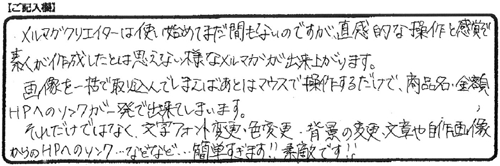 【ご記入欄】
メルマガクリエイターは使い始めてまだ間もないのですが、直感的な操作と感覚で
素人が作成したとは思えない様なメルマガが出来上がります。
画像を一括で取り込んでしまえばあとはマウスで操作するだけで、商品名・金額、
HPへのリンクが一発で出来てしまいます。
それだけではなく、文字フォント変更・色変更・背景の変更、文章や自作画像
からのHPへのリンク…などなど…簡単すぎます!!素敵です!!